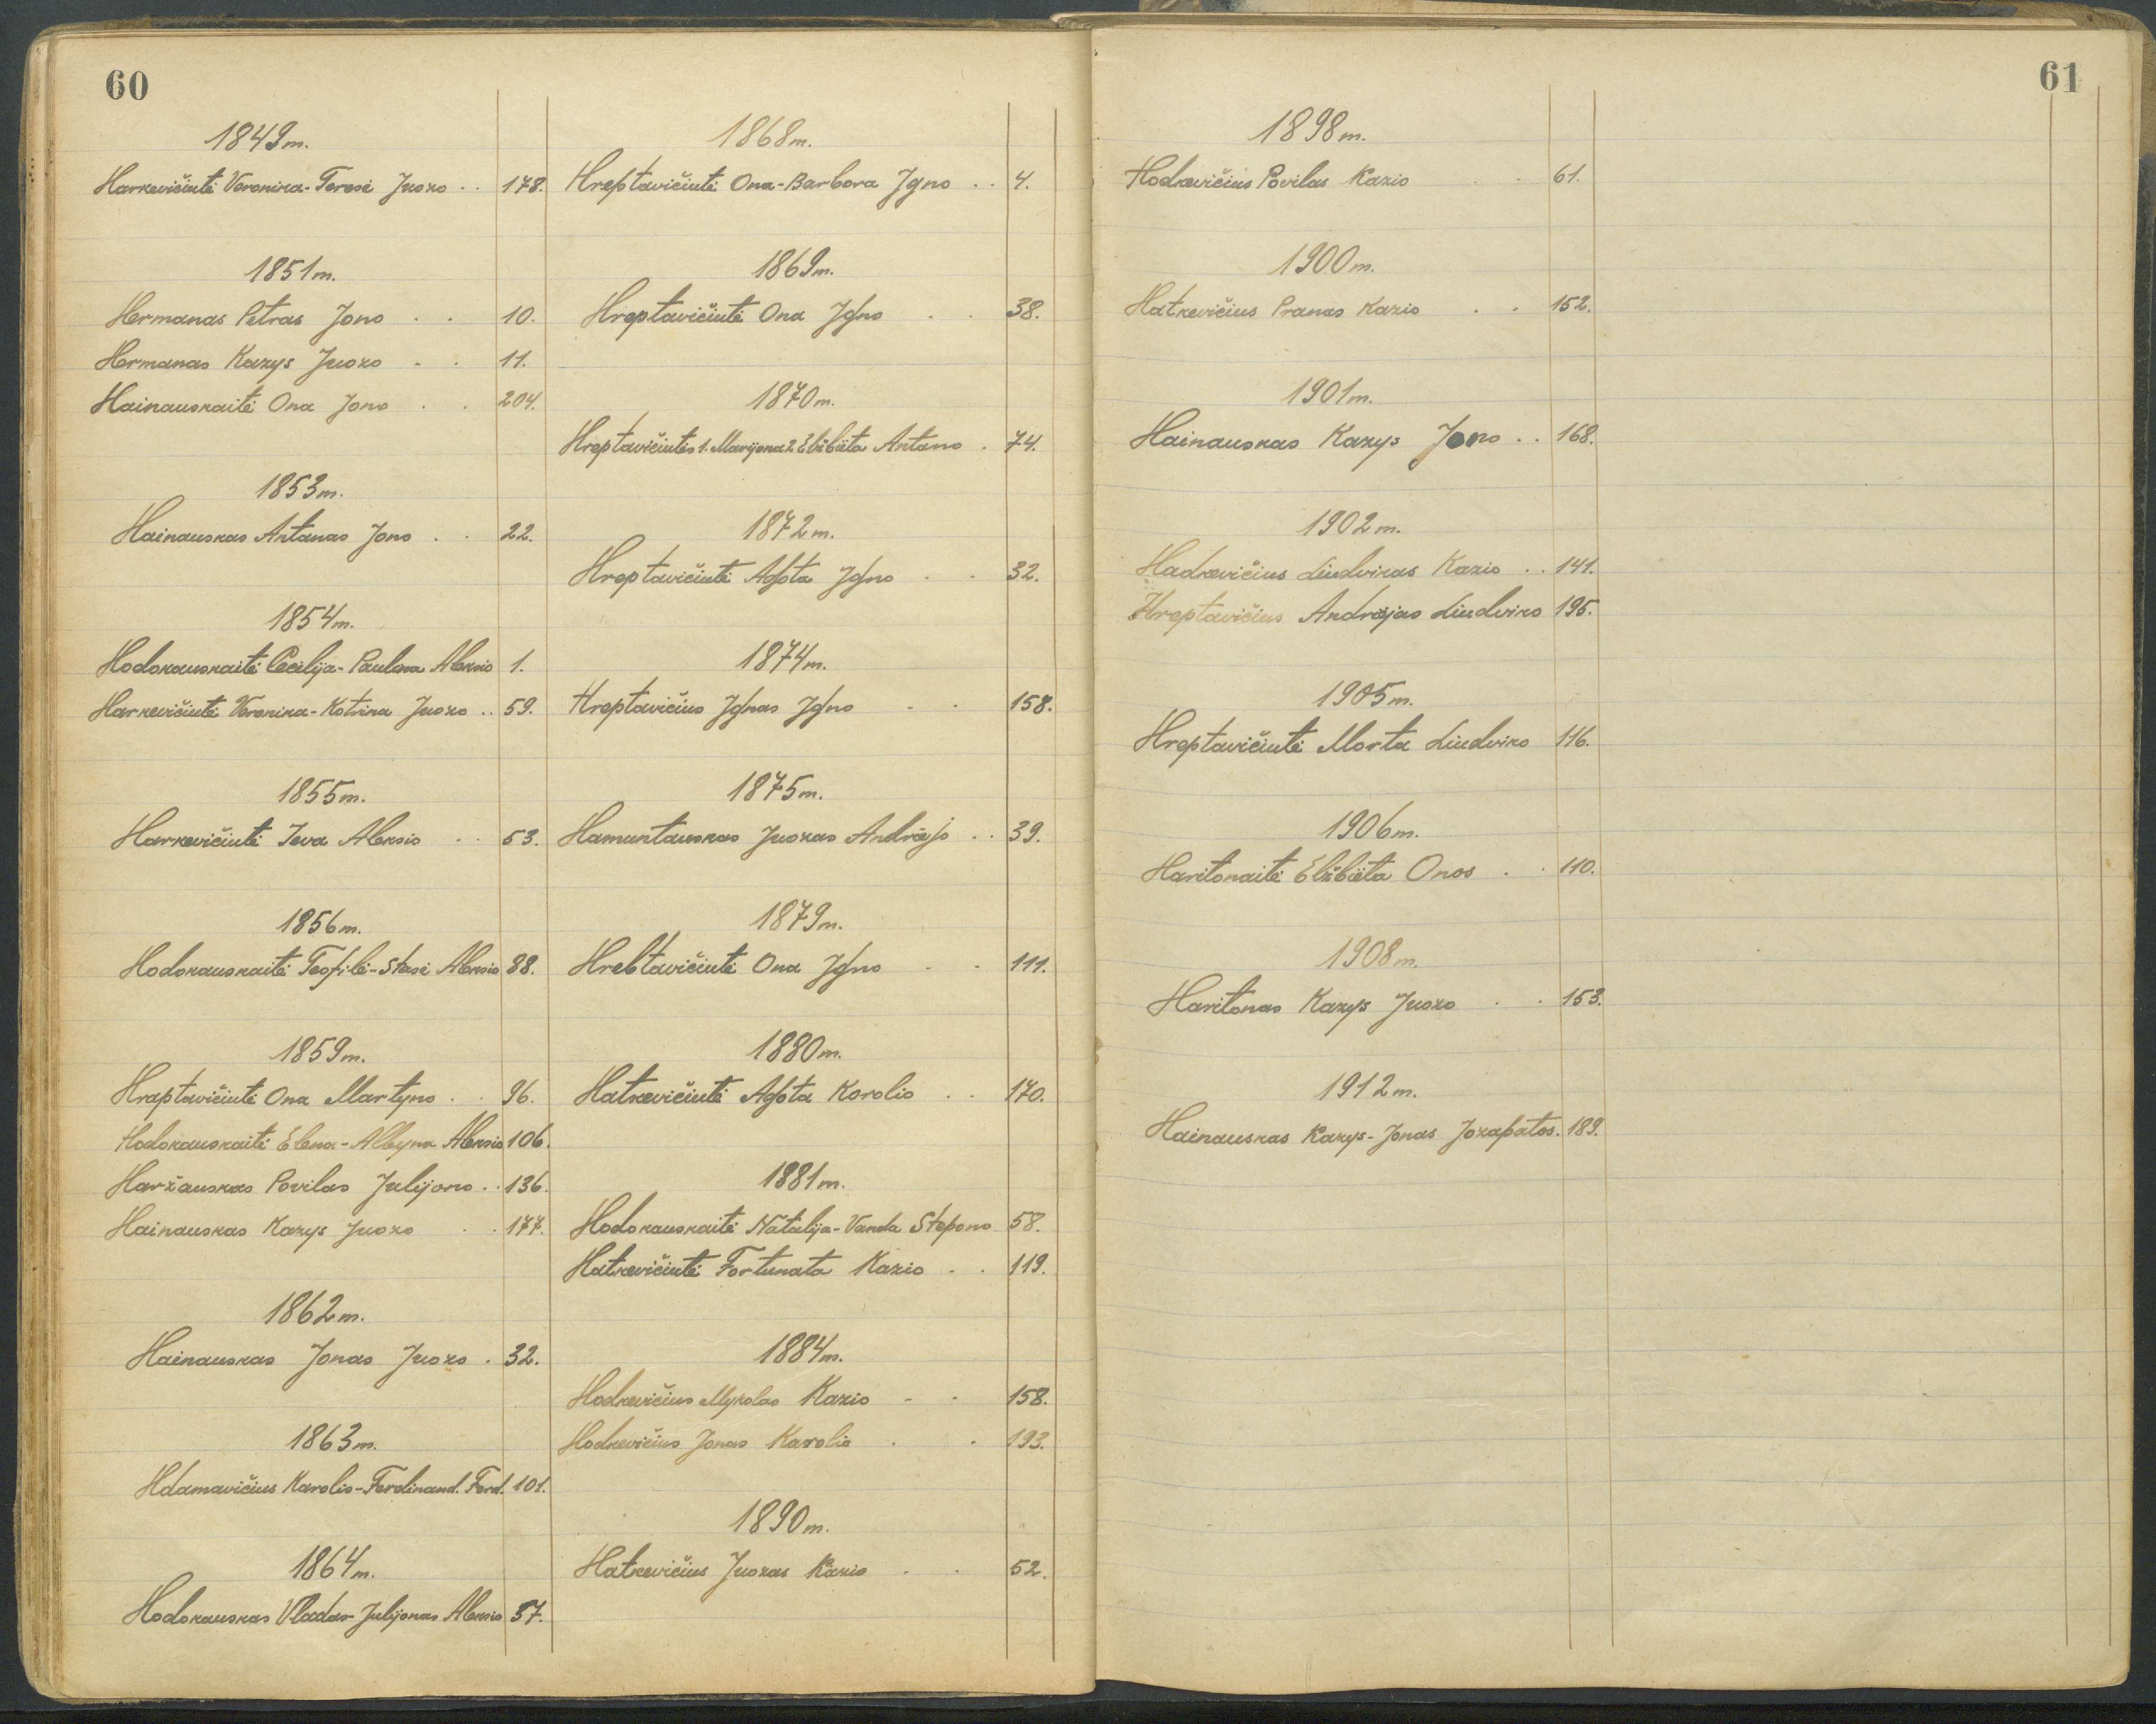 60
1849m.
Harkevičiutė Veronika-Teresė Juozo . . 178.
1851m.
Hermanas Petras Jono . . 10.
Hermanas Kazys Juozo . . 11.
Hainauskaitė Ona Jono . . 204.
1853m.
Hainauskas Antanas Jono . . 22.
1854m.
Hodokauskaitė Cecilija-Paulina Aleksio 1.
Harkevičiutė Veronika-Kotrina Juozo . . 59.
1855m.
Harkevičiutė Ieva Aleksio . . 53.
1856m.
Hodokauskaitė Teofilė-Stasė Aleksio 88.
1859m.
Hraptavičiutė Ona Martyno . . 96.
Hodokauskaitė Elena-Albyna Aleksio 106.
Haržauskas Povilas Julijono . . 136.
Hainauskas Kazys Juozo . . 177.
1862m.
Hainauskas Jonas Juozo . 32.
1863m.
Hdamavičius Karolis-Ferdinand. Ferd. 101.
1864m.
Hodokauskas Vladas-Julijonas Aleksio 57.
1868m.
Hreptavičiutė Ona-Barbora Igno . . 4.
1869m.
Hreptavičiutė Ona Igno . . 38.
1870m.
Hreptavičiutės 1. Marijona 2. Elžbieta Antano . 74.
1872m.
Hreptavičiutė Agota Igno . . 32.
1874m.
Hreptavičius Ignas Igno . . 158.
1875m.
Hamuntauskas Juozas Andriejo . . 39.
1879m.
Hrebtavičiutė Ona Igno . . 111.
1880m.
Hatkevičiutė Agota Karolio . . 170.
1881m.
Hodokauskaitė Natalija-Vanda Stepono 58.
Hatkevičiutė Fortunata Kazio . . 119.
1884m.
Hodkevičius Mykolas Kazio . . 158.
Hodkevičius Jonas Karolio . . 193.
1890m.
Hatkevičius Juozas Kazio . . 52.
61
1898m.
Hodkevičius Povilas Kazio . . 61.
1900m.
Hatkevičius Pranas Kazio . . 152.
1901m.
Hainauskas Kazys Jono . . 168.
1902m.
Hadkevičius Liudvikas Kazio . . 141.
Hreptavičius Andriejas Liudviko 195.
1905m.
Hreptavičiutė Morta Liudviko 116.
1906m.
Haritonaitė Elžbieta Onos . . 110.
1908m.
Haritonas Kazys Juozo . . 153.
1912m.
Hainauskas Kazys-Jonas Jozapatos. 189.